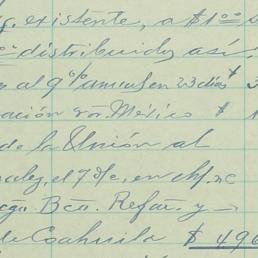 g. existente, a $1.00
distribuidos así
y al 9% anual en 23 días $ 3
ación s/n. México $
de la Unión al
el 7 d/e, en ch/. n/c
cgo. Bco. Refac. y
de Coahuila $ 496